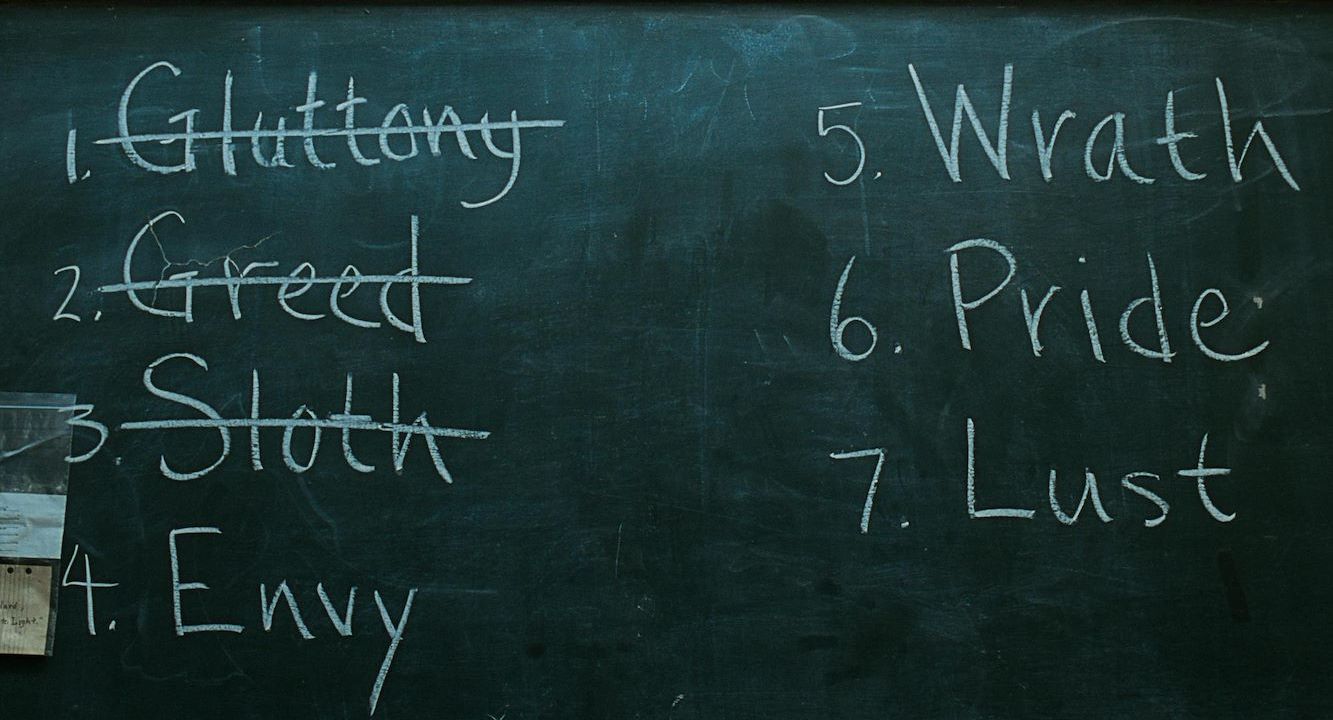 1. Gluttony
2. Greed
3. Sloth
4. Envy
5. Wrath
6. Pride
7. Lust
Light."